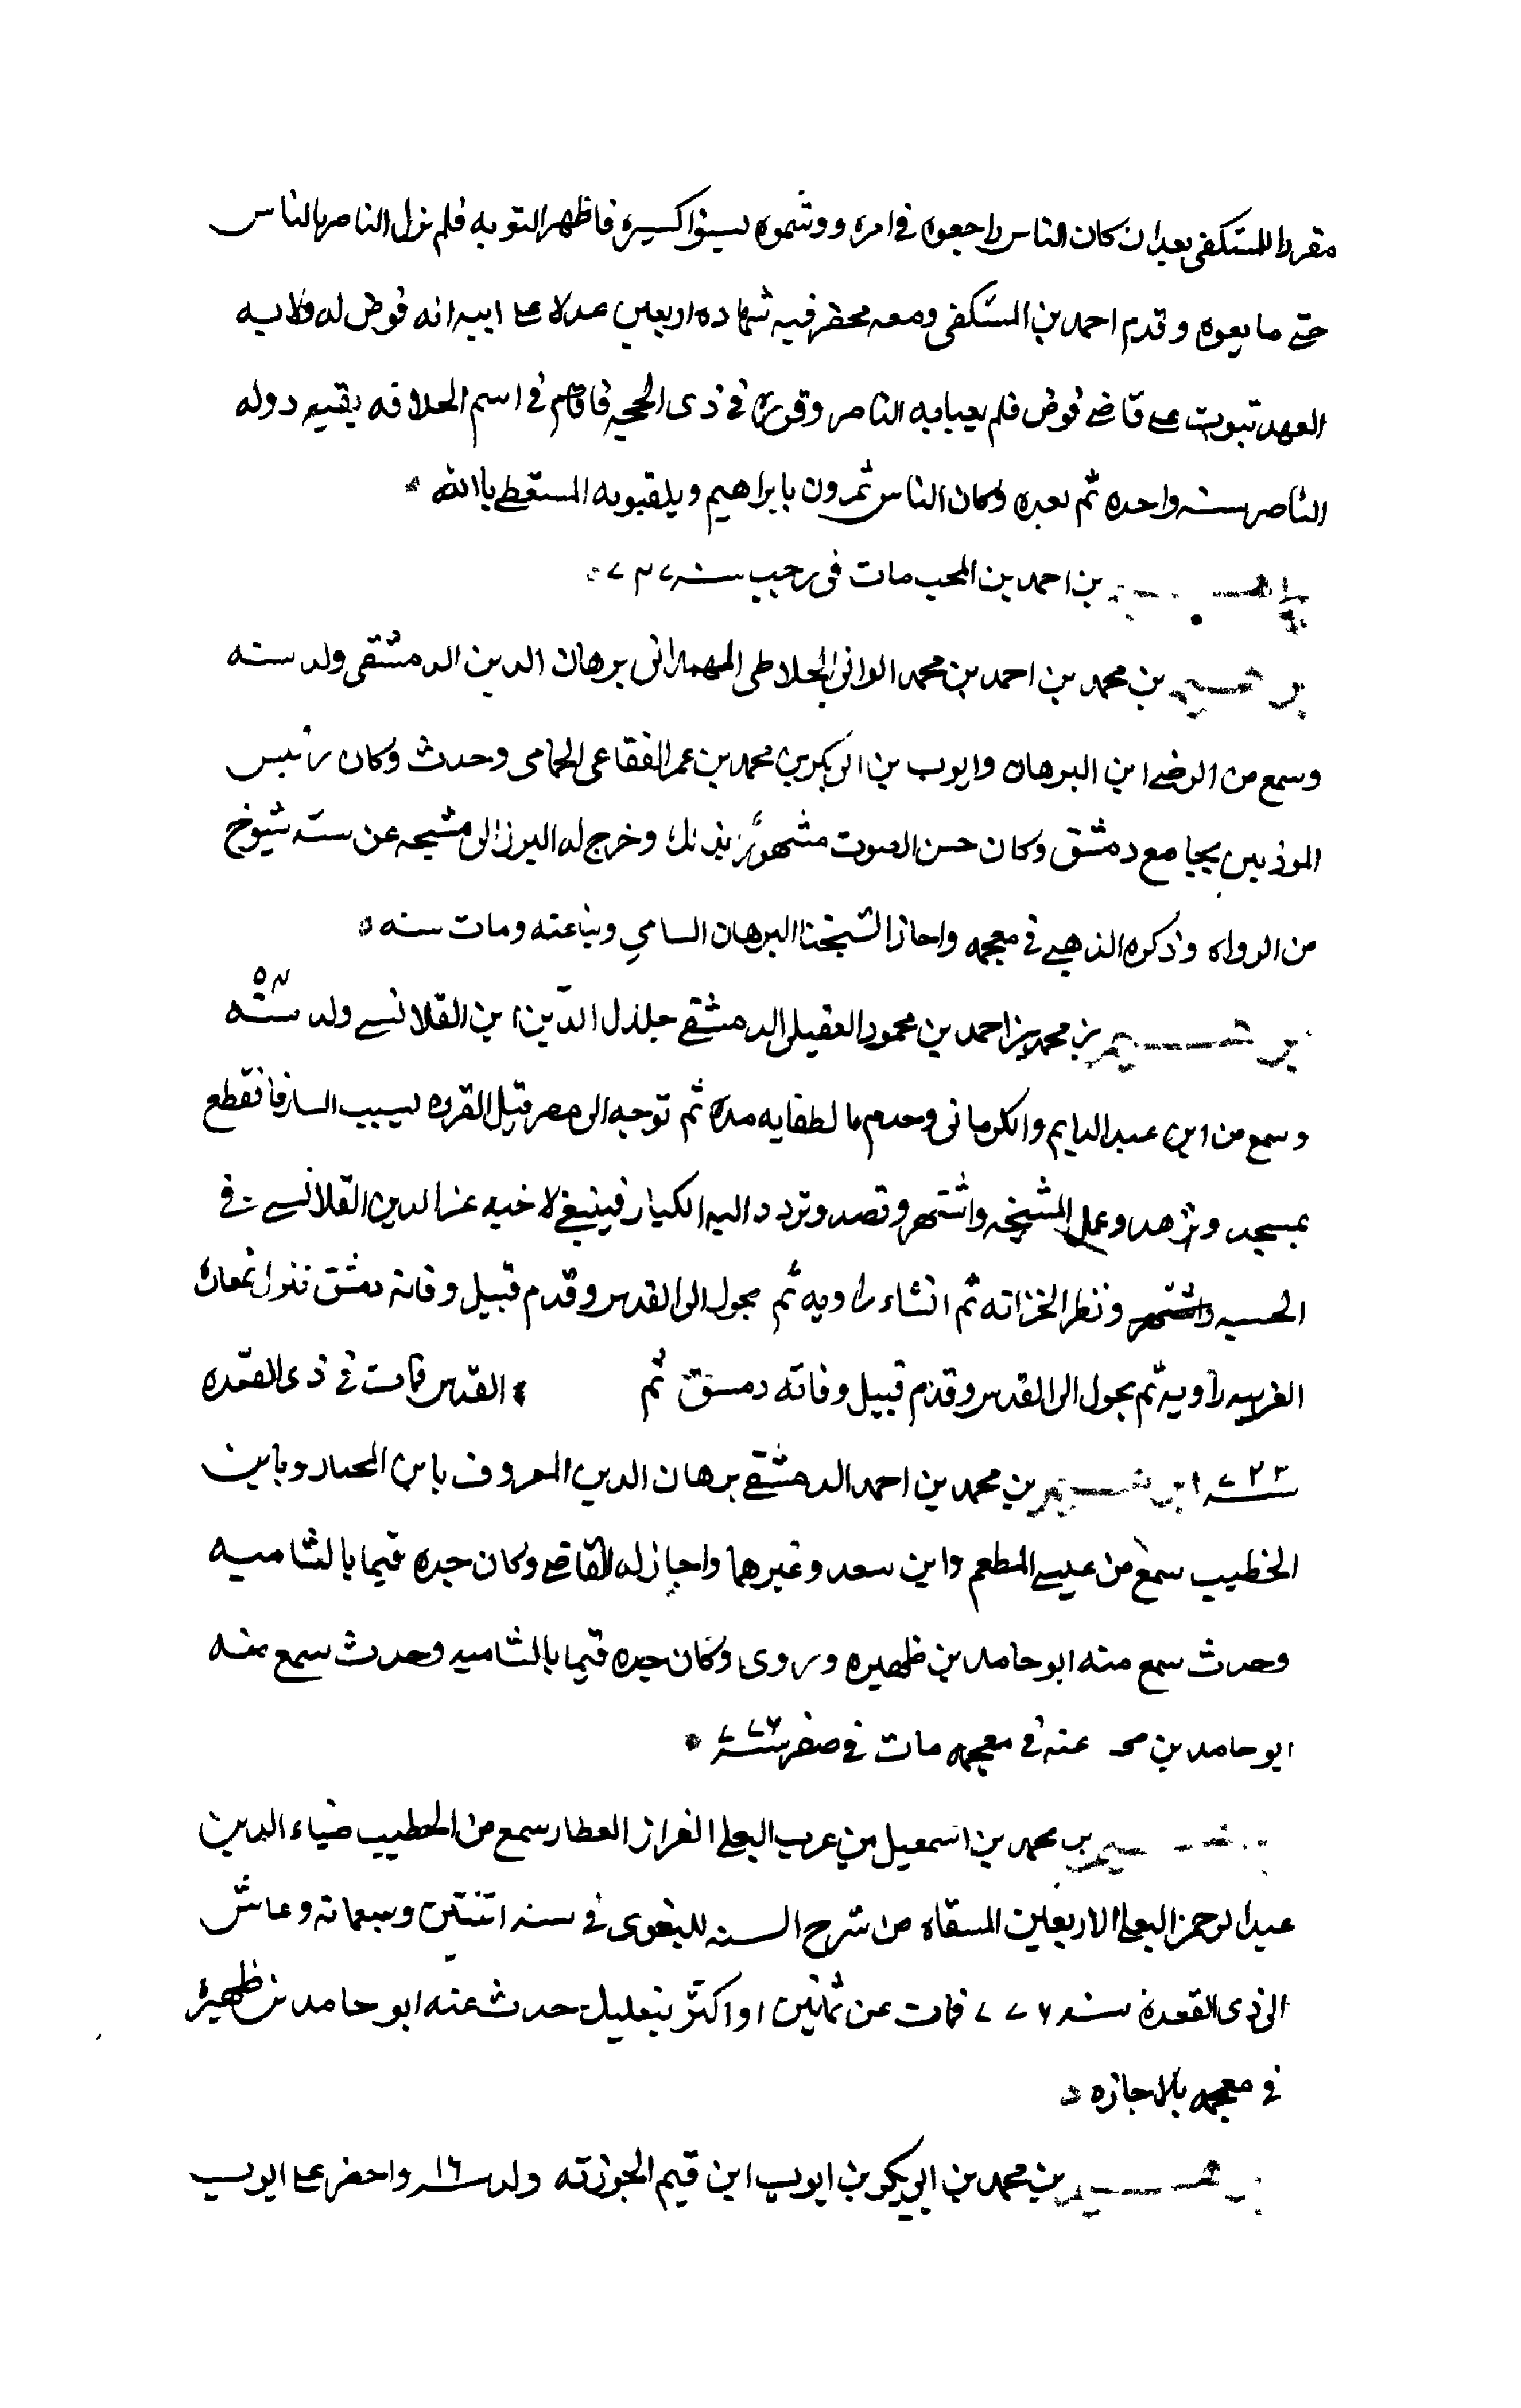 مقرط للمستكفى بعد ان كان الناس راجعوه فى امره ووشموه بسوا كسيره فاظهر التوبه فلم نزل الناصر بالناس
حتى ما يعوه وقدم احمد بن المستكفى ومعه محضر فيه شهاده اربعين عدلا على ابيه انه فوض له ولايه
العهد تبوت على قاضى قوض فلم يعبا به الناصر وقرره فى ذى الحجه فاقام فى اسم الخلافه بقيه دوله
الناصر سنه واحده ثم بعده وكان الناس ثمرون بابراهيم ويلقبونه المستعطى بالله
بن احمد بن المحب مات فى رجب سنه
بن محمد بن احمد بن محمد الوانى الخلاطى المهمدانى برهان الدين الدمشقى ولد سنه
وسمع من الرضى ابن البرهان وايوب بن ابى بكر بن محمد بن عمر الفقاعى الحمامى وحدث وكان رئيس
الموذنين بجامع دمشق وكان حسن الصوت مشهورا بذلك وخرج له البرزالى مشيخه عن سته شيوخ
من الرواه وذكره الذهبى فى معجمه واجاز لشيخنا البرهان السامى ومات سنه
ابرهيم بن محمد بن احمد بن محمود العقيلى الدمشقى جلال الدين ابن القلانسى ولد سنه ٥٤
وسمع من ابن عبد الدايم والكرمانى وخدم مده ثم توجه الى مصر قبل القرن بسبب التتار فانقطع
بمسجد وتزهد وعمل المشيخه واشتهر وقصد وتردد اليه الكبار لاخيه عز الدين القلانسى فى
الحسبه واشتهر ونظر الخزانه ثم انشاء زاويه ثم تحول الى القدس وقدم قبيل وفاته دمشق
زاويه ثم تحول الى القدس وقدم قبيل وفاته دمشق ثم القدس فمات فى ذى القعده
سنه ٧٢٢ ابرهيم بن محمد بن احمد الدمشقى برهان الدين المعروف بابن وبابن
الخطيب سمع من عيسى المطعم وابن سعد وغيرهما واجاز له القاضى وكان جده قيما بالشاميه
وحدث سمع منه ابو حامد بن ظهيره وروى وكان جده قيما بالشاميه وحدث سمع منه
ابو حامد بن عنه فى معجمه مات فى صفر سنه ٧٧٦
بن محمد بن اسمعيل بن عرب البعلى القزاز العطار سمع من الخطيب ضياء الدين
عبد الرحمن البعلى الاربعين المنتقاه من شرح السنه للبغوى فى سنه اثنتين وسبعماته وعاش
الى ذى القعده سنه ٧٧٦ فمات عن ثمانين او اكثر بقليل حدث عنه ابو حامد بن ظهيره
فى معجمه بالاجازه
ابرهيم بن محمد بن ابى بكر بن ايوب ابن قيم الجوزيه ولد سنه ١٦ واحضر على ايوب